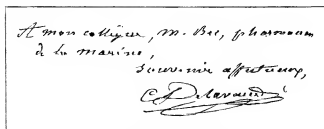 A mon collègue, M. Bec, pharmacien
de la marine,
Souvenir affectueux,
C Delavaud